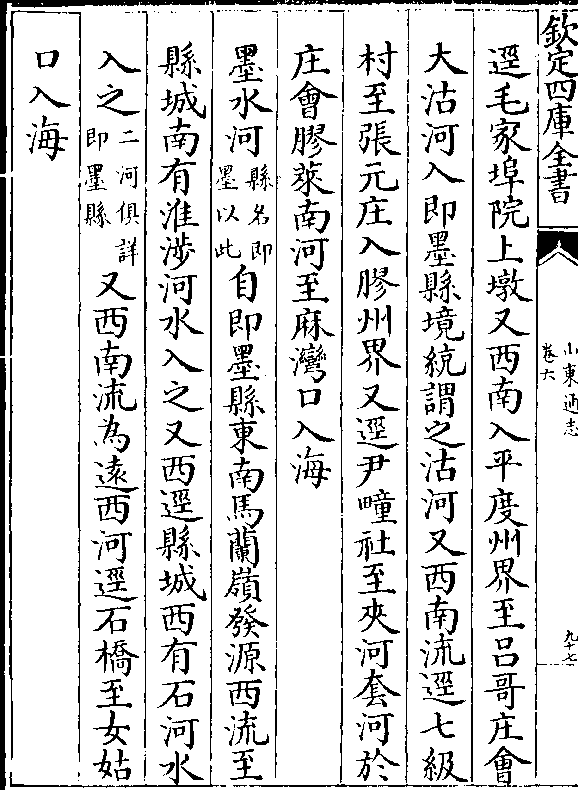 欽定四庫全書
山東通志
卷六
九十七
逕毛家埠院上墩又西南入平度州界至吕哥庄會
大沽河入即墨縣境統謂之沽河又西南流逕七級
村至張元庄入膠州界又逕尹疃社至夾河套河於
庄會膠萊南河至麻灣口入海
墨水河縣名即墨以此自即墨縣東南馬蘭嶺發源西流至
縣城南有淮涉河水入之又西逕縣城西有石河水
入之二河俱詳即墨縣又西南流為遠西河逕石橋至女姑
口入海